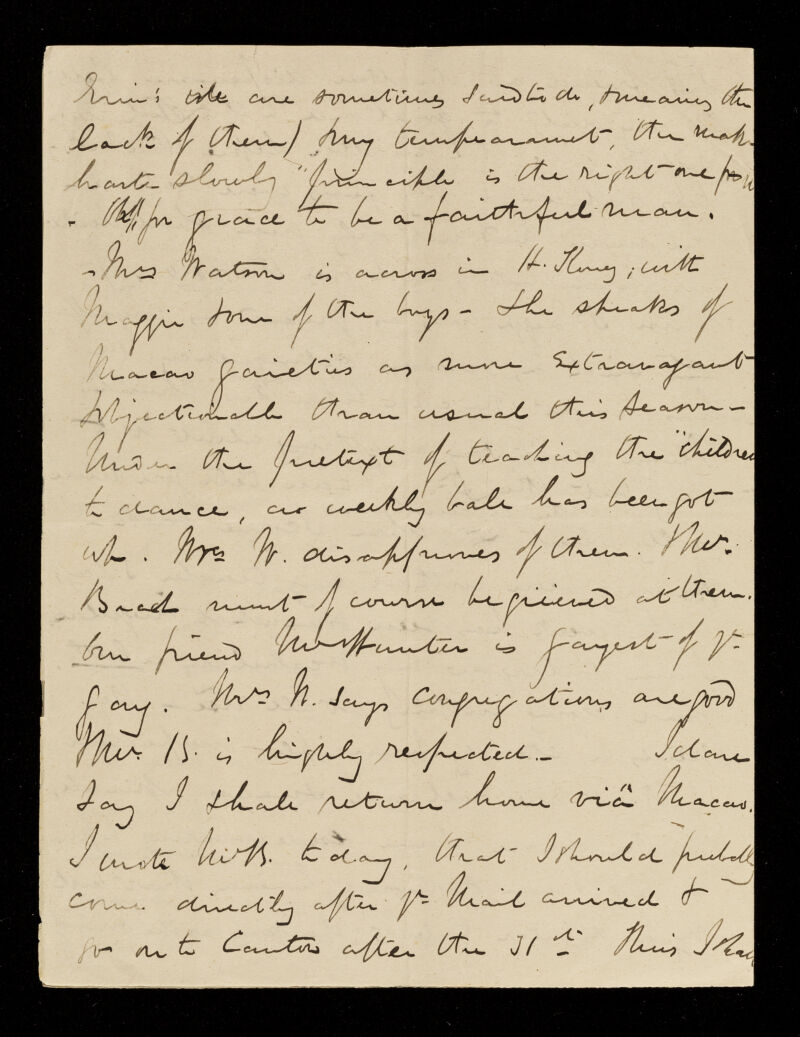 Erin's isle are sometimes said to do, (meaning the
lack of them) & my temperamet, the "mak
haste slowly" principle is the right one
- Oh! for grace to be a faithful man.
- Mrs Watson is across in H. Kong, with
Maggie & one of the boys - She speaks of
Macao gaieties as more extravagant
& objectionable than usual this season -
Under the pretext of teaching the "children
to dance, a weekly ball has been got
up. Mrs W. disapproves of them. & Mr.
must of course be grieved at them.
Our friend Mr Hunter is gayest of ye
gay. Mrs W. says congregations are good
& Mr. B. is highly respected. - I dare
say I shall return home viâ Macao.
I wrote Mr B. today, that I should probably
come directly after ye Mail arrived &
go on to Canton after the 31st This I shall